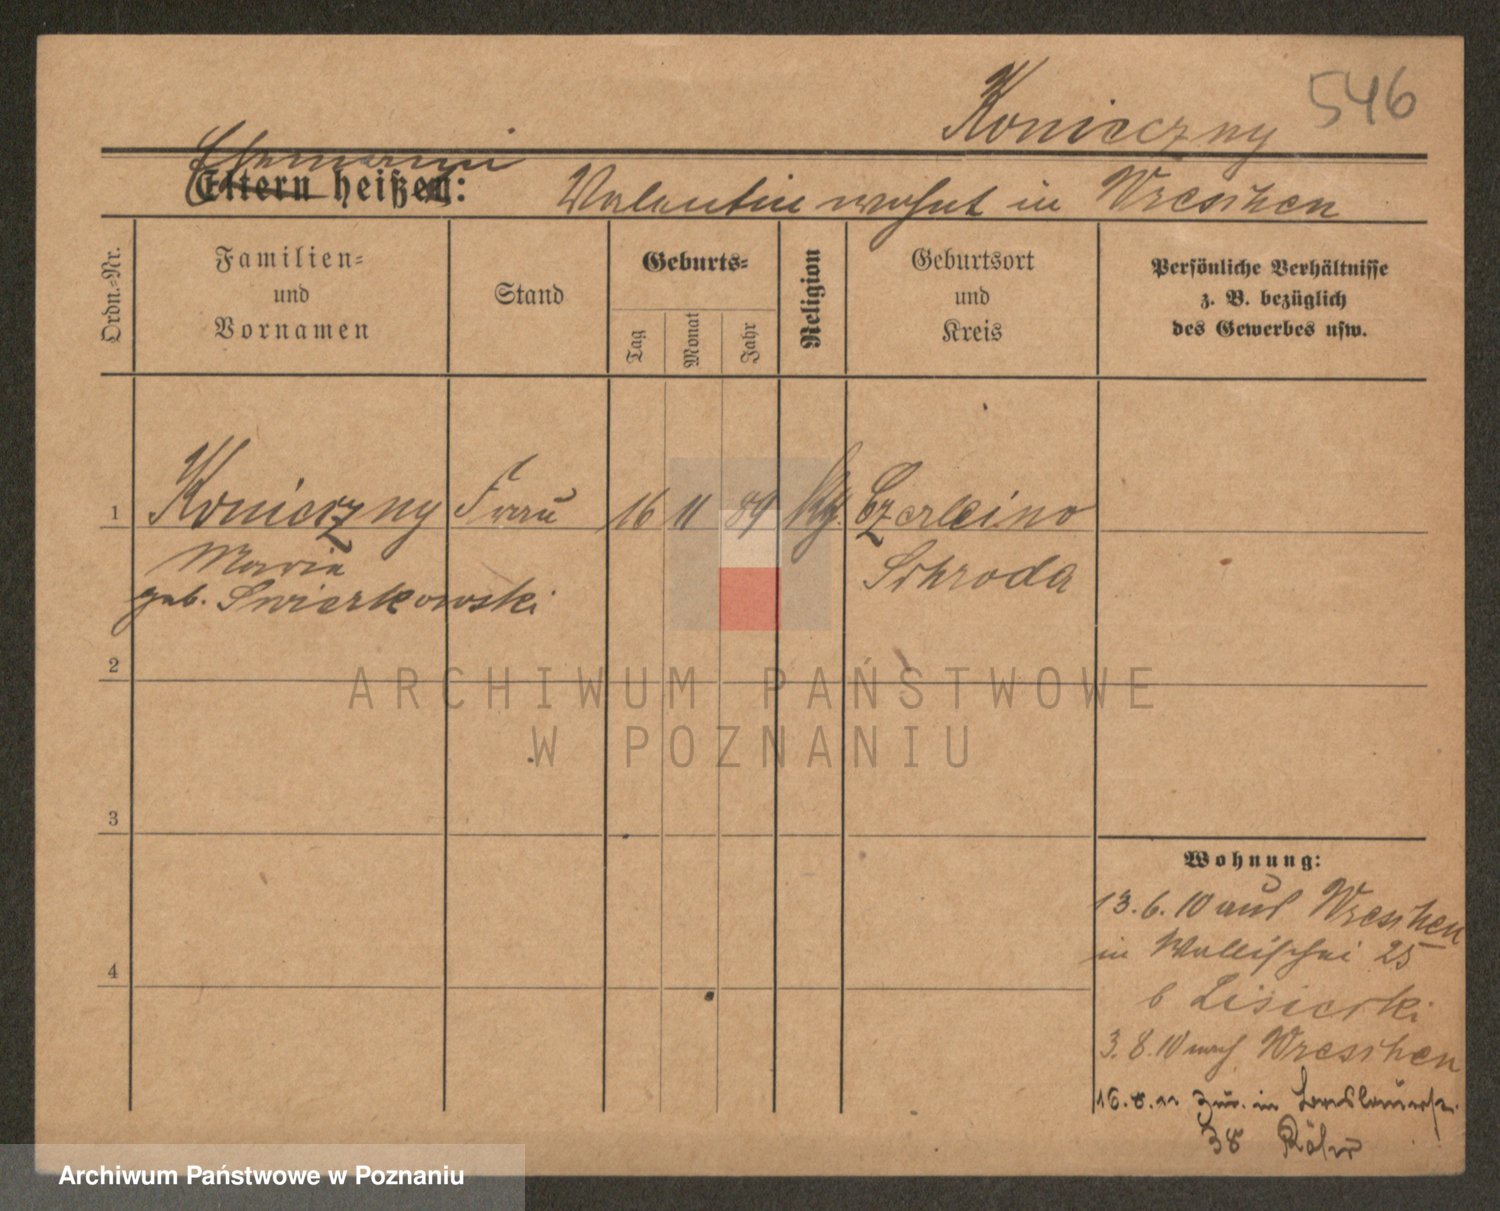 Konieczny 546
Ehemann
Eltern heißen: Valentin wohnt in Wreschen
Ordn.-Nr.
Familien-
und
Vornamen
Stand
Geburts-
Tag
Monat
Jahr
Religion
Geburtsort
und
Kreis
Persönliche Verhältnisse
z. B. bezüglich
des Gewerbes usw.
1 Konieczny Frau 16 11 89 kath. Czerleino
Maria Schroda
geb. Swierkowski
2
3
4
Wohnung:
13.6.10 aus Wreschen
in Wallischei 25
b Lisiecki
3.8.10 nach Wreschen
16.8.11 zur. in
38
ARCHIWUM PAŃSTWOWE
W POZNANIU
Archiwum Państwowe w Poznaniu